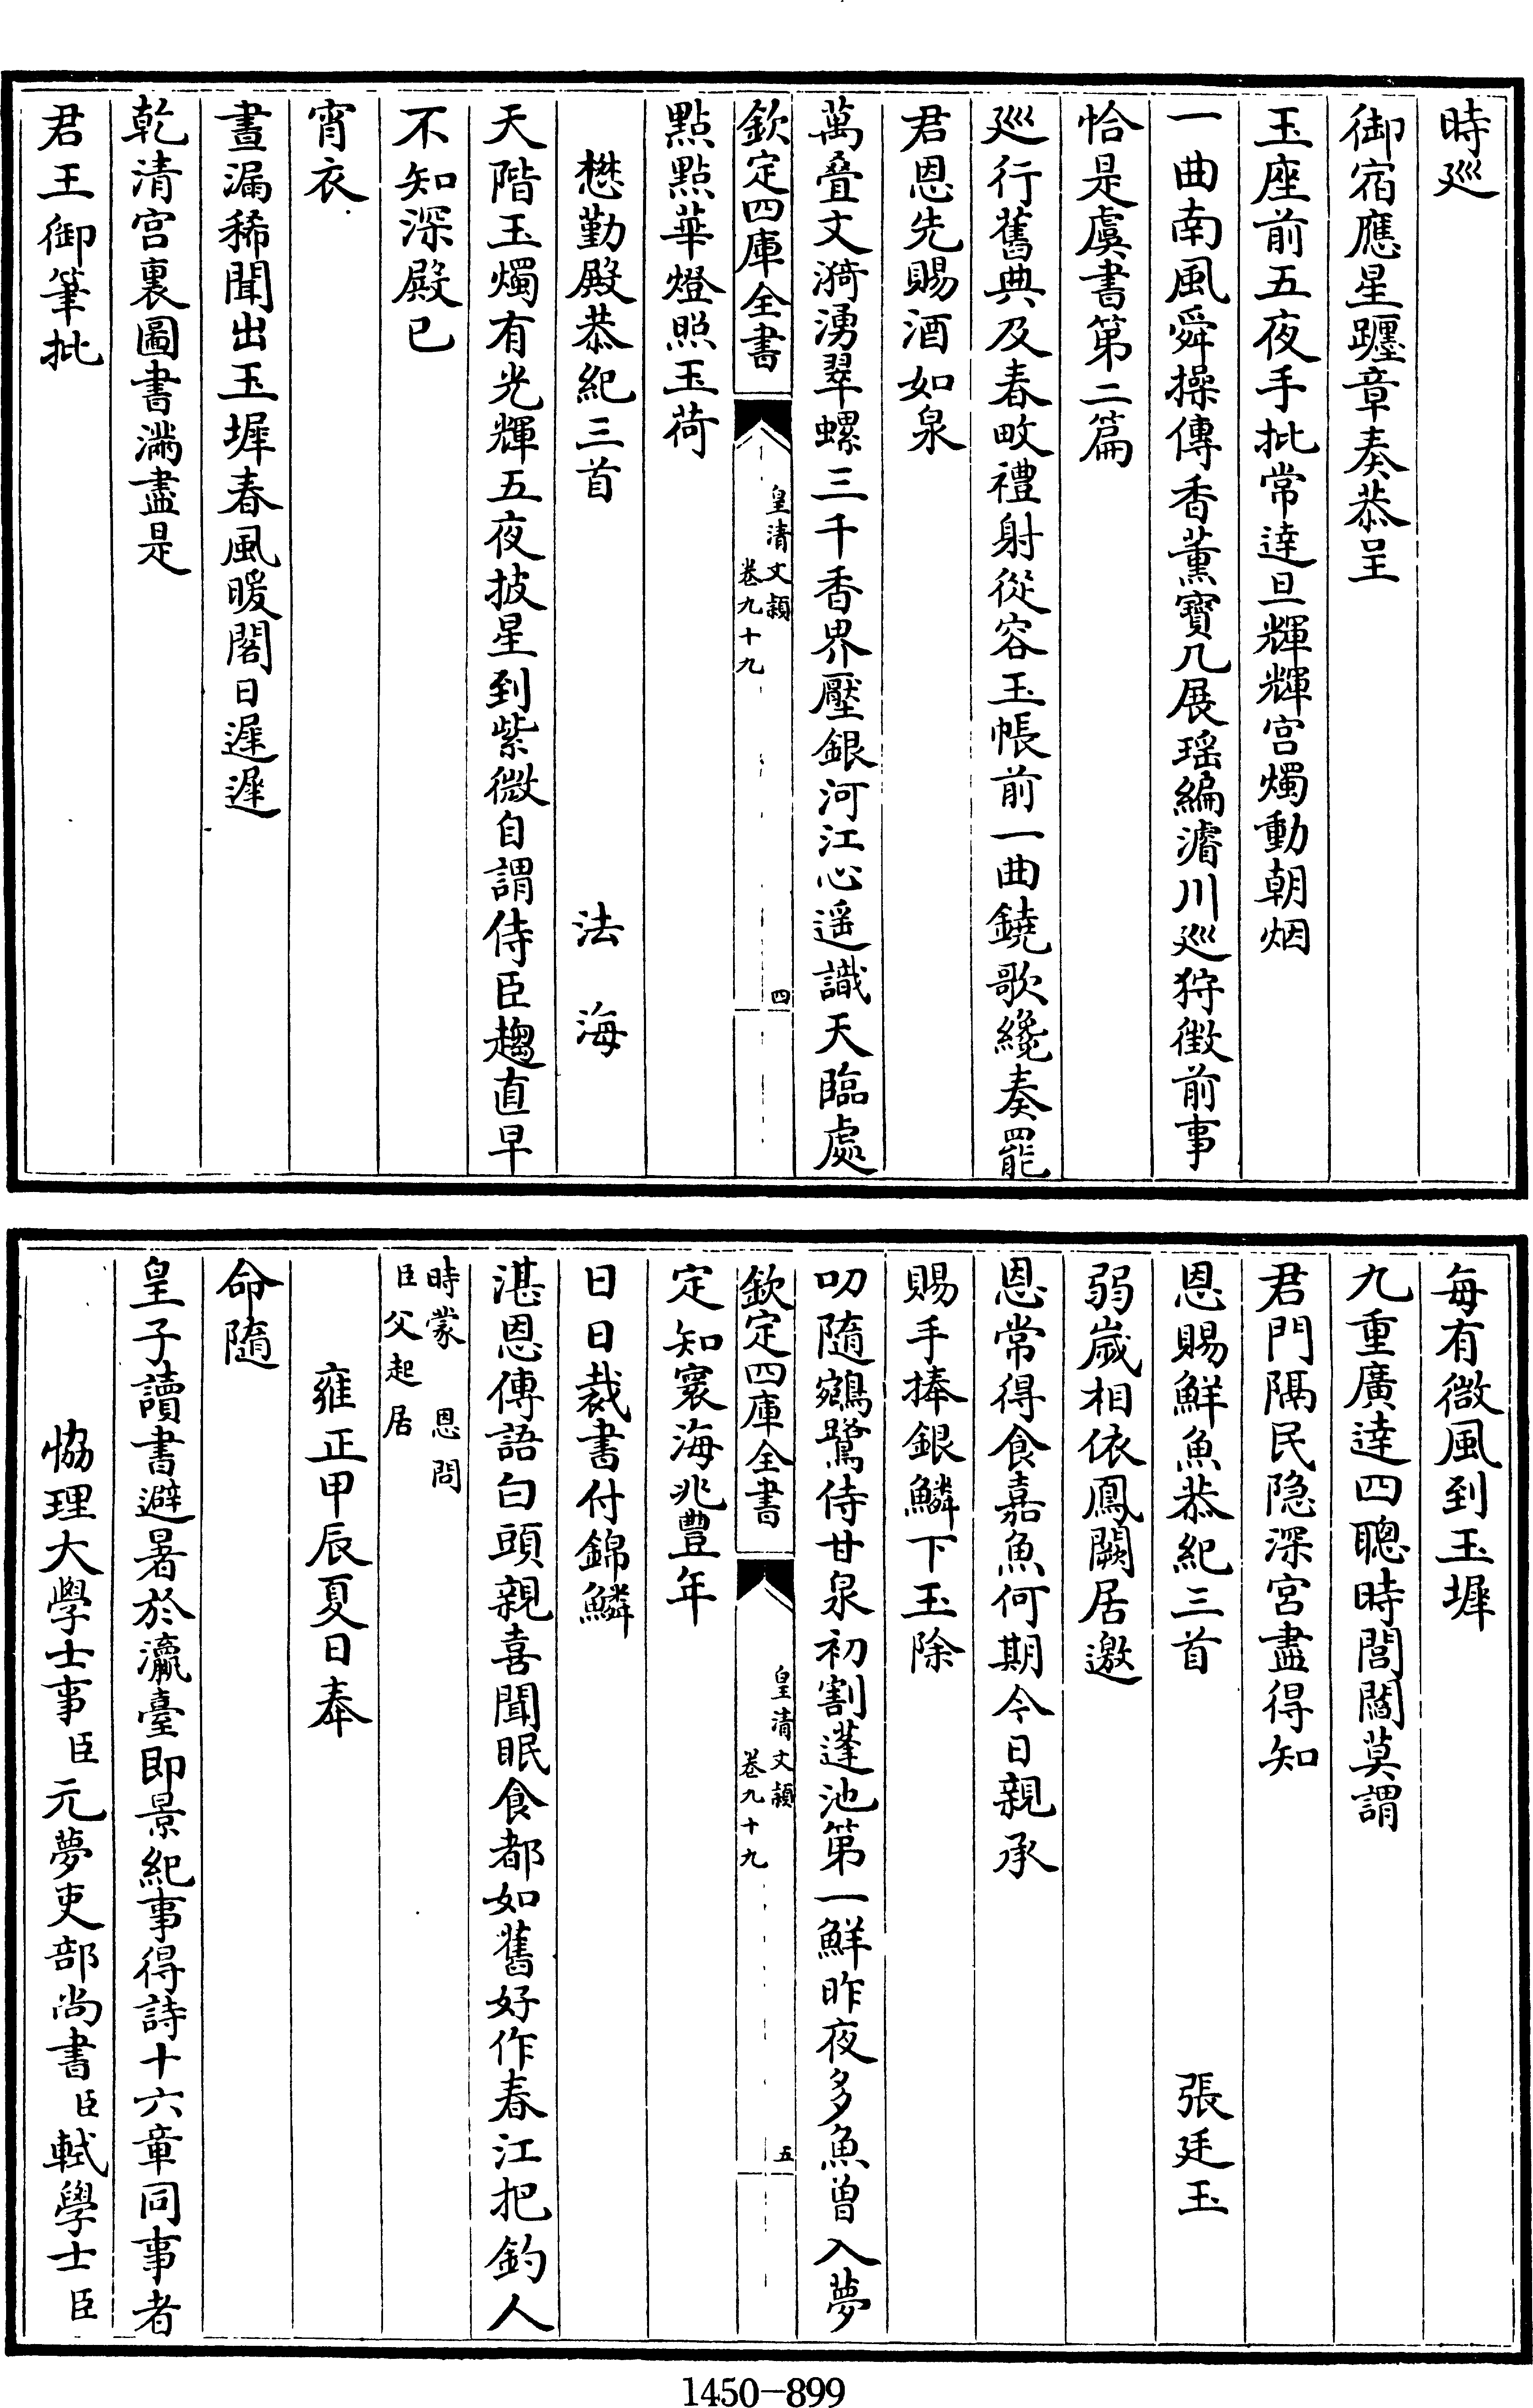 時廵
御宿應星躔章奏恭呈
玉座前五夜手批常達旦輝輝宫燭動朝烟
一曲南風舜操傳香薰寳几展瑶編濬川廵狩徴前事
恰是虞書第二篇
廵行舊典及春畋禮射從容玉帳前一曲鐃歌纔奏罷
君恩先賜酒如泉
萬叠文漪湧翠螺三千香界壓銀河江心遥識天臨處
欽定四庫全書
皇清文穎
卷九十九
四
點點華燈照玉荷
懋勤殿恭紀三首
法海
天階玉燭有光輝五夜披星到紫微自謂侍臣趨直早
不知深殿已
宵衣
晝漏稀聞出玉墀春風暖閣日遲遲
乾清宫裏圖書滿盡是
君王御筆批
每有微風到玉墀
九重廣達四聰時閶闔莫謂
君門隔民隐深宫盡得知
恩賜鮮魚恭紀三首
張廷玉
弱歲相依鳳闕居邀
恩常得食嘉魚何期今日親承
賜手捧銀鱗下玉除
叨隨鵷鷺侍甘泉初割蓬池第一鮮昨夜多魚曾入夢
欽定四庫全書
皇清文穎
卷九十九
五
定知寰海兆豐年
日日裁書付錦鱗
湛恩傳語白頭親喜聞眠食都如舊好作春江把釣人
時蒙 恩問
臣父起居
雍正甲辰夏日奉
命隨
皇子讀書避暑於瀛臺即景紀事得詩十六章同事者
恊理大學士事臣元夢吏部尚書臣軾學士臣
1450-899